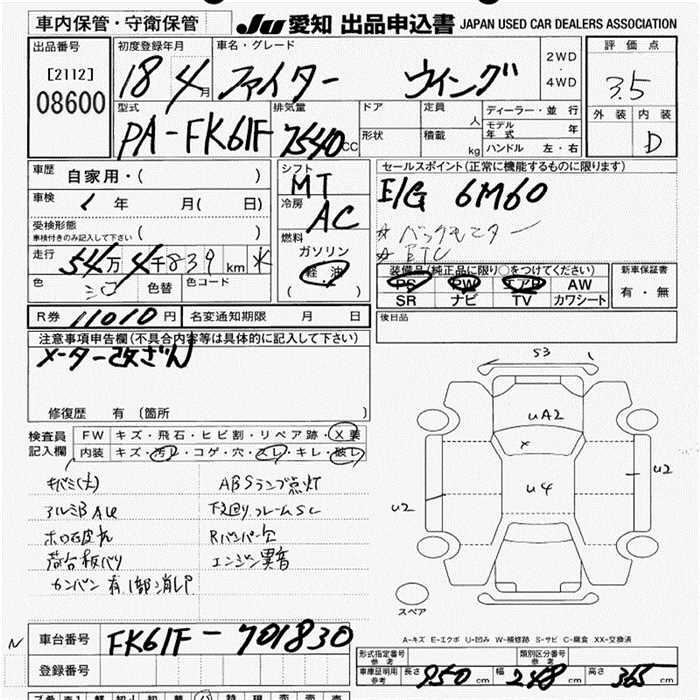 車内保管・守衛保管
JU 愛知 出品申込書 JAPAN USED CAR DEALERS ASSOCIATION
出品番号 初度登録年月 車名・グレード 2WD・4WD 評価点
[2112] 08600 18 4月 ファイター ウイング 3.5
型式 排気量 ドア 定員 人 ディーラー・並行 外装 内装
PA-FK61F 7540cc 形状 積載 kg モデル年式 年 D
ハンドル 左・右
車歴 自家用・( ) シフト MT セールスポイント(正常に機能するものに限ります)
車検 年 月( 日) 冷房 AC E/G 6M60
受検形態 ( ) ☆バックモニター
車検付きのみ記入して下さい 燃料 ☆ETC
走行 54万4千839km ガソリン
色 シロ 色替 色コード 軽油 ( )
装備品(純正品に限り○をつけてください) 新車保証書
PS PW エアB AW 有・無
SR ナビ TV カワシート
R券 11010円 名変通知期限 月 日 後日品
注意事項申告欄(不具合内容等は具体的に記入して下さい)
メーター改ざん
修復歴 有 (箇所 )
検査員記入欄 FW キズ・飛石・ヒビ割・リペア跡・X要
内装 キズ・汚レ・コゲ・穴・スレ・キレ・破レ
キバミ(大) ABSランプ点灯
アルミBAW 下廻りフレームSC
ホロ皮破れ Rバンパー欠
荷台板バリ エンジン異音
カンバン有、1部消しP
S3
UA2
X
U4
U2
U2
スペア
A-キズ E-エクボ U-凹み W-補修跡 S-サビ C-腐食 XX-交換済
N 車台番号 FK61F-701830
登録番号
型式指定番号 参考 類別区分番号 参考
車庫証明用 参考 長さ 950cm 幅 248cm 高さ 365cm